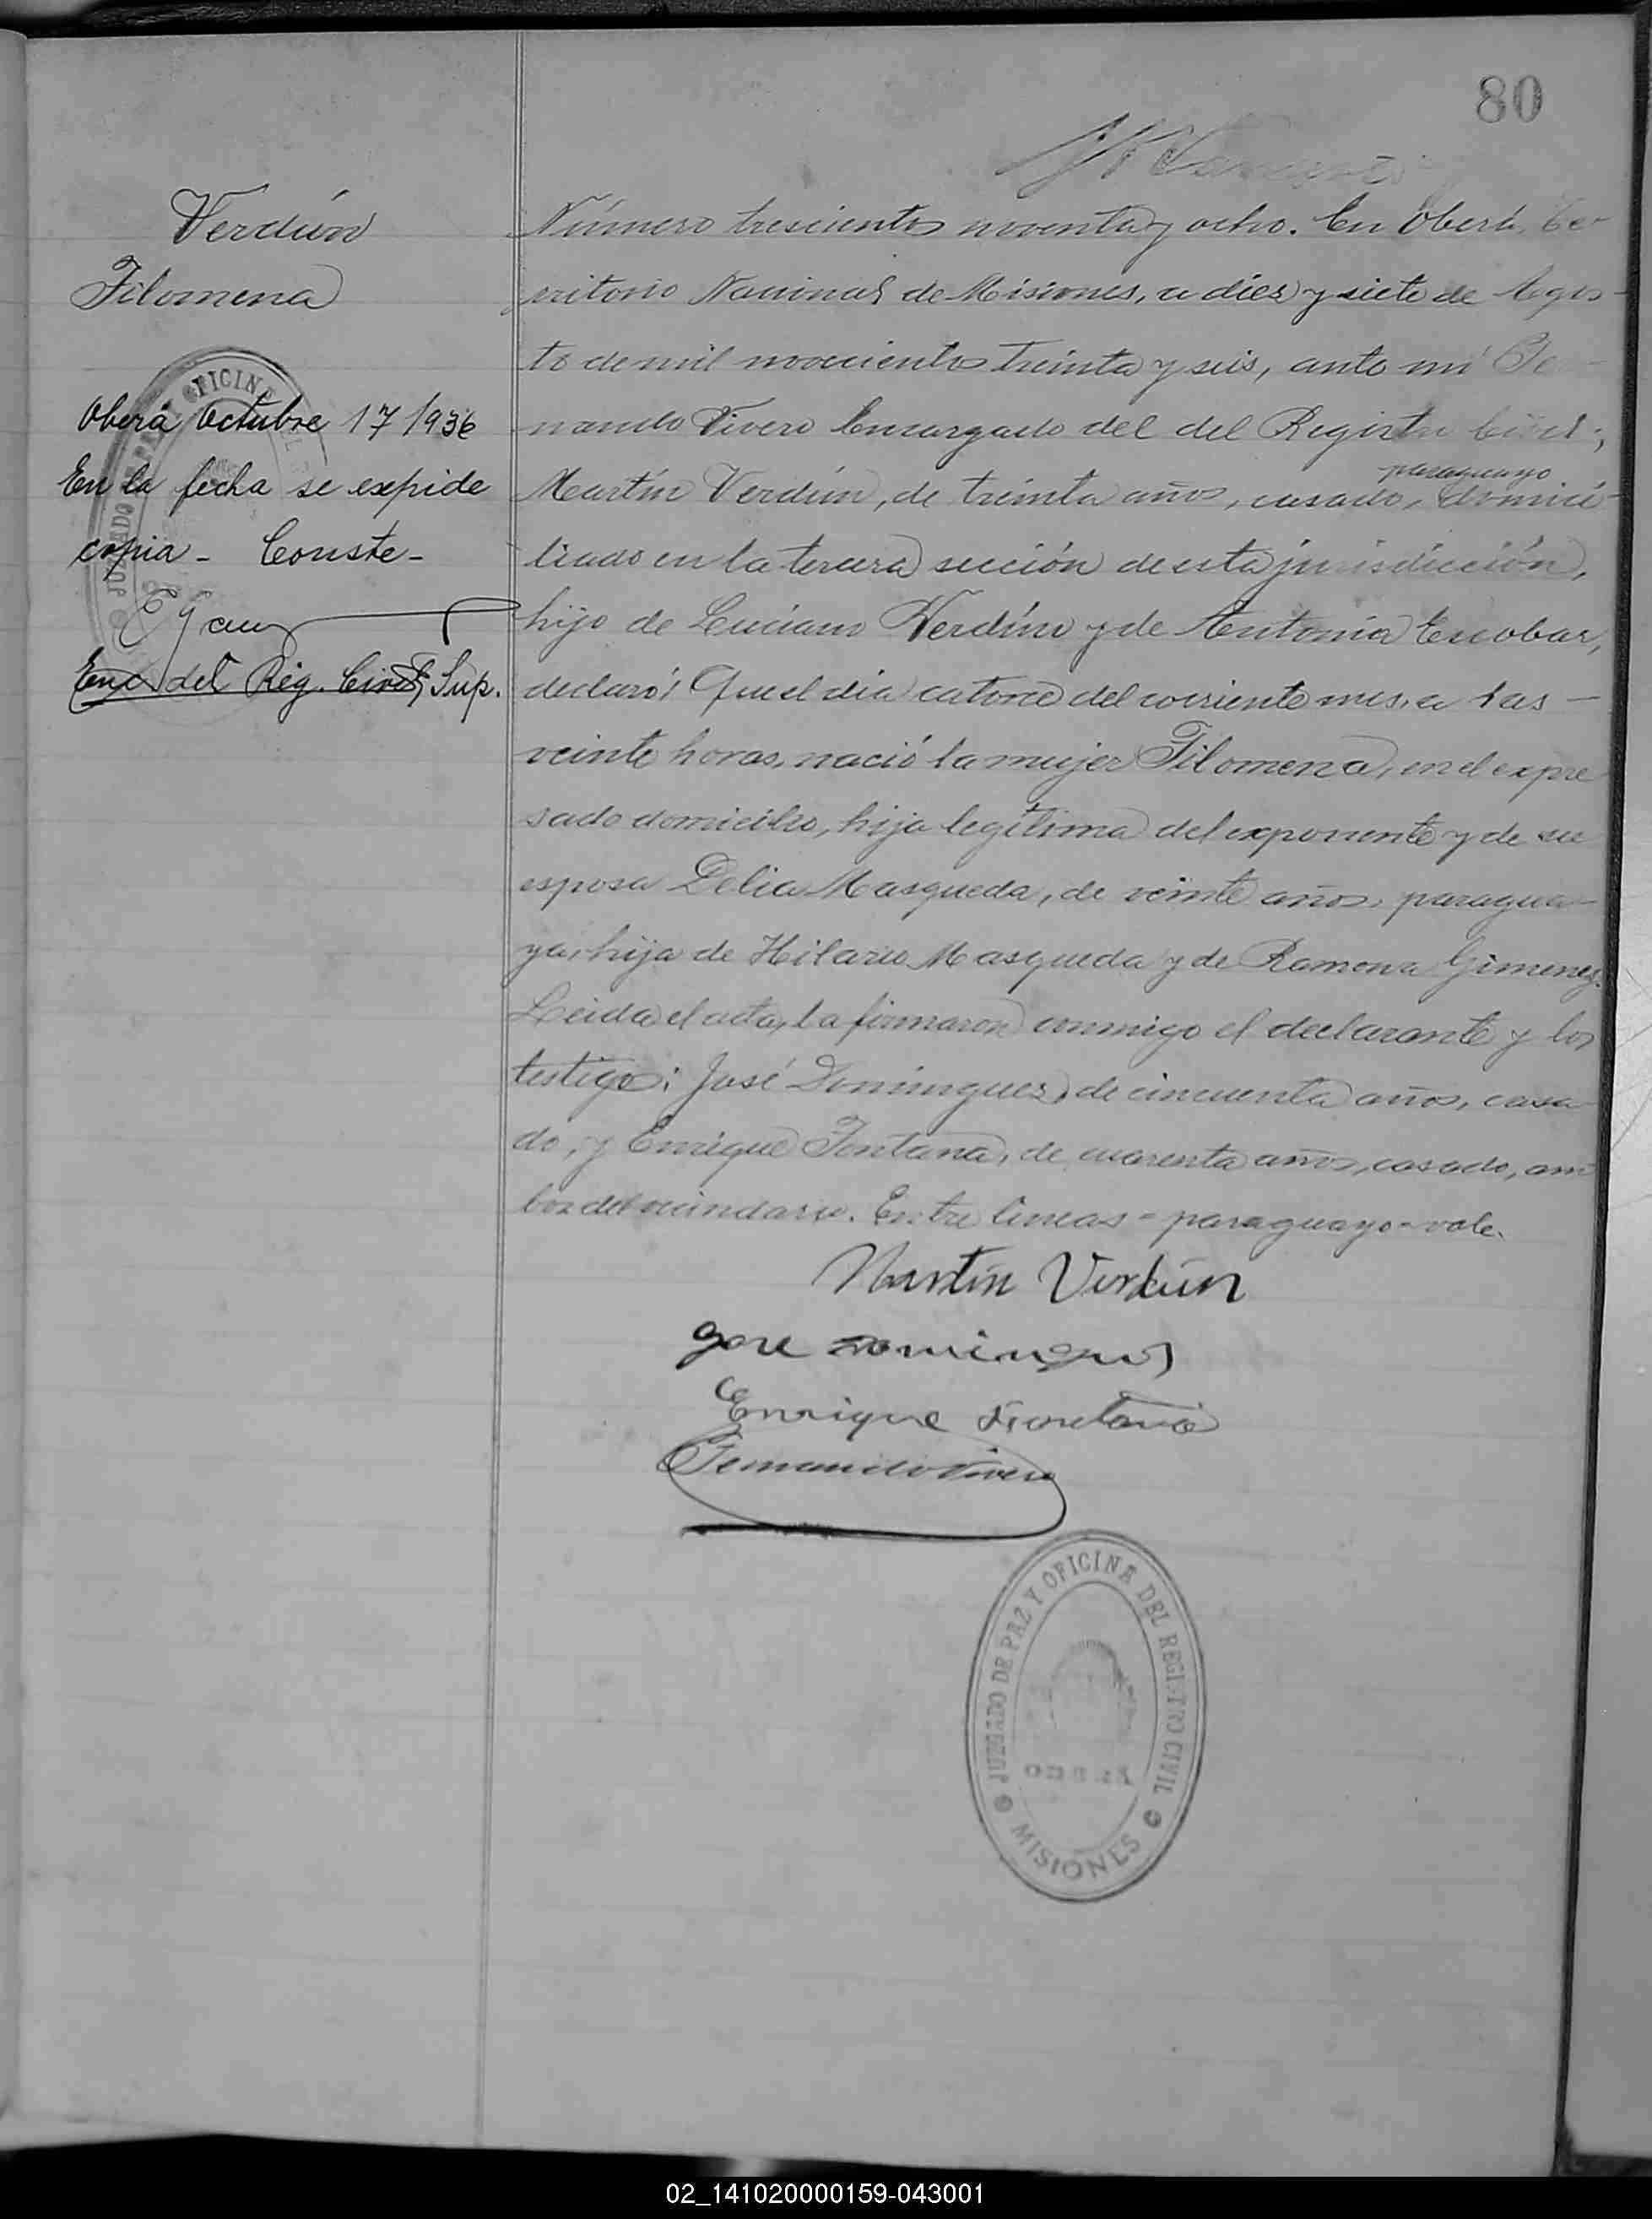 80
Verdún
Filomena
Oberá Octubre 17/936
En la fecha se expide
copia - Conste -
Enc. del Reg. Civil Sup.
Número trescientos noventa y ocho. En Oberá, Te-
rritorio Nacional de Misiones, a diez y siete de Agos-
to de mil novecientos treinta y seis, ante mí Fer-
nando Vivero Encargado del del Registro Civil;
paraguayo
Martín Verdún, de treinta años, casado, domici-
liado en la tercera sección de esta jurisdicción,
hijo de Luciano Verdún y de Antonia Escobar,
declaró: Que el día catorce del corriente mes, a las -
veinte horas, nació la mujer Filomena, en el expre
sado domicilio, hija legítima del exponente y de su
esposa Delia Masqueda, de veinte años, paragua-
ya, hija de Hilario Masqueda y de Ramona Gimenez.
Leida el acta, la firmaron conmigo el declarante y los
testigo: José Dominguez, de cincuenta años, casa-
do, y Enrique Fontana, de cuarenta años, casado, am-
bos del vecindario. Entre lineas = paraguayo = vale.
Martín Verdún
Jose Dominguez
Enrique Fontana
Fernando Vivero
JUZGADO DE PAZ Y OFICINA DEL REGISTRO CIVIL
OBERÁ
MISIONES
02_141020000159-043001